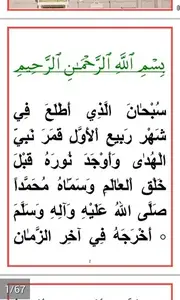 بِسْمِ اللَّهِ الرَّحْمَٰنِ الرَّحِيمِ
سُبْحَانَ الَّذِي أَطْلَعَ فِي
شَهْرِ رَبِيعِ الْأَوَّلِ قَمَرَ نَبِيِّ
الْهُدَى وَأَوْجَدَ نُورَهُ قَبْلَ
خَلْقِ الْعَالَمِ وَسَمَّاهُ مُحَمَّدًا
صَلَّى اللهُ عَلَيْهِ وَآلِهِ وَسَلَّمَ
٥ أَخْرَجَهُ فِي آخِرِ الزَّمَانِ
1/67